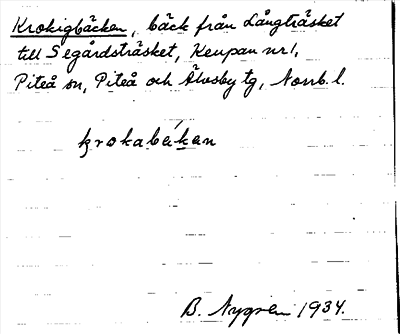 Krokigbäcken, bäck från Långträsket
till Segårdsträsket, Keupan nr 1,
Piteå sn, Piteå och Älvsby tg, Norrb. l.
krokabäkan
B. Nygren 1934.